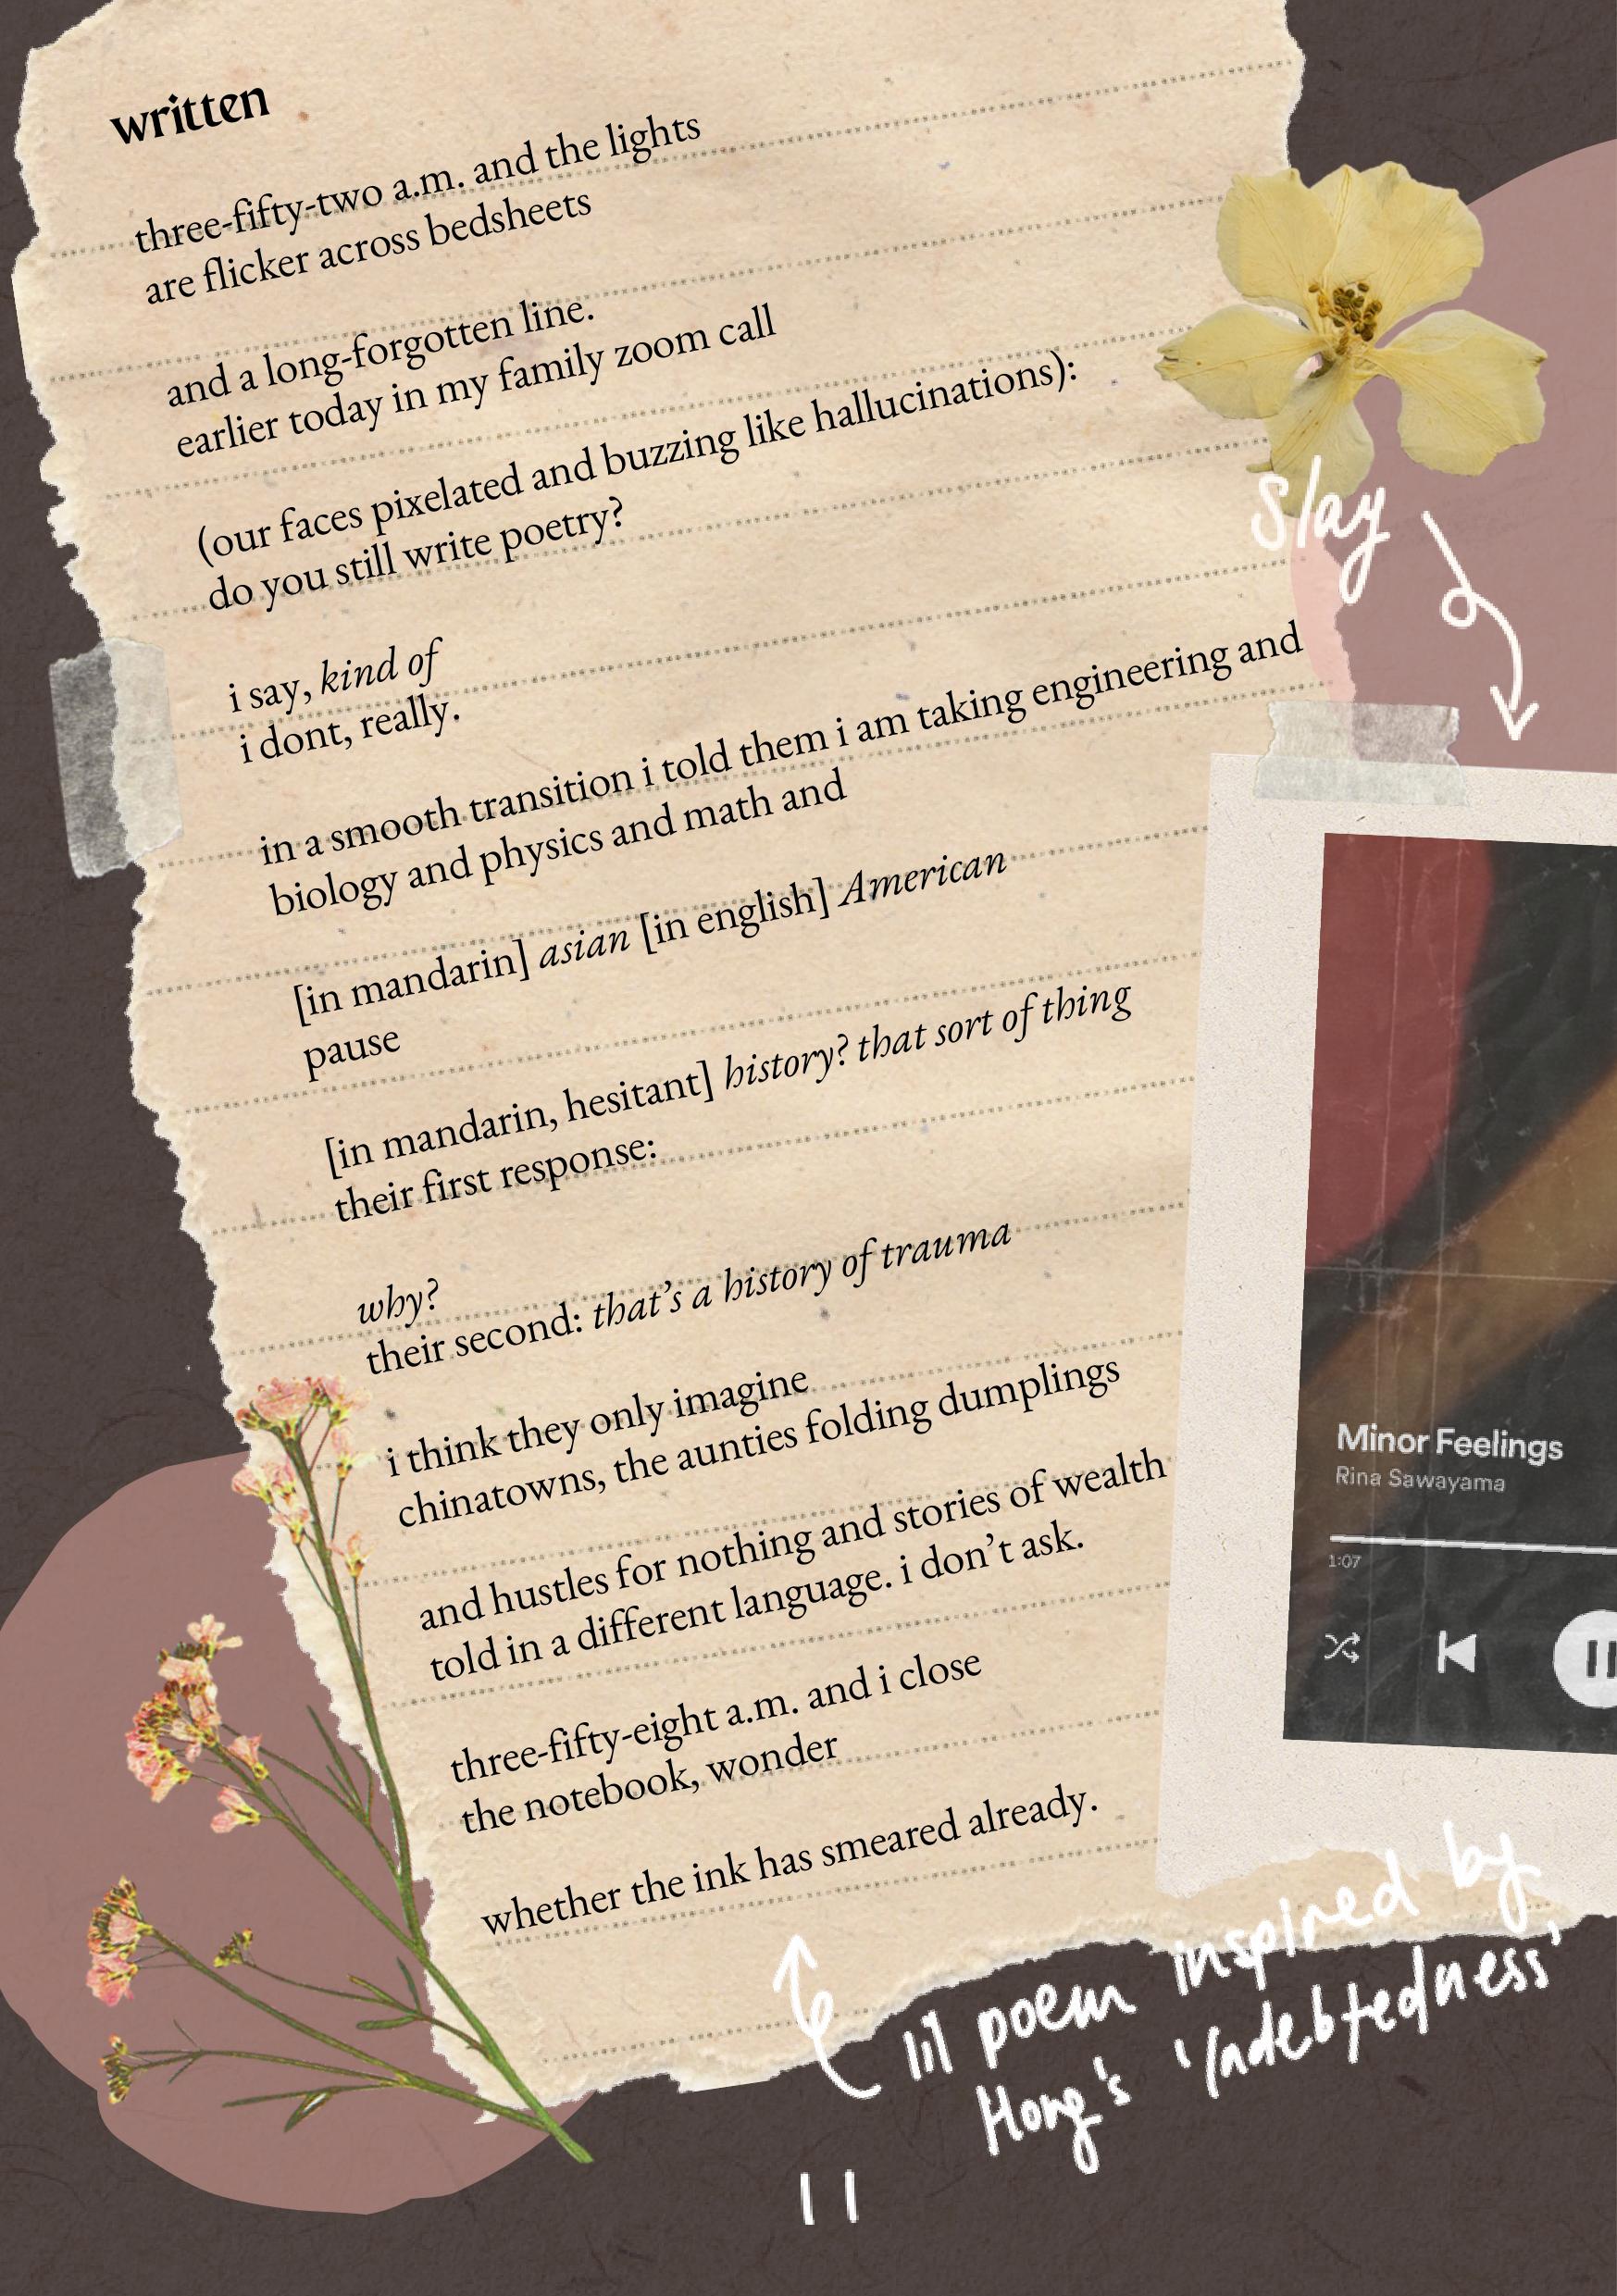 written
three-fifty-two a.m. and the lights
are flicker across bedsheets
and a long-forgotten line.
earlier today in my family zoom call
(our faces pixelated and buzzing like hallucinations):
do you still write poetry?
i say, kind of
i dont, really.
in a smooth transition i told them i am taking engineering and
biology and physics and math and
[in mandarin] asian [in english] American
pause
[in mandarin, hesitant] history? that sort of thing
their first response:
why?
their second: that's a history of trauma
i think they only imagine
chinatowns, the aunties folding dumplings
and hustles for nothing and stories of wealth
told in a different language. i don't ask.
three-fifty-eight a.m. and i close
the notebook, wonder
whether the ink has smeared already.
Slay
Minor Feelings
Rina Sawayama
1:07
lil poem inspired by
Hong's 'Indebtedness'
11